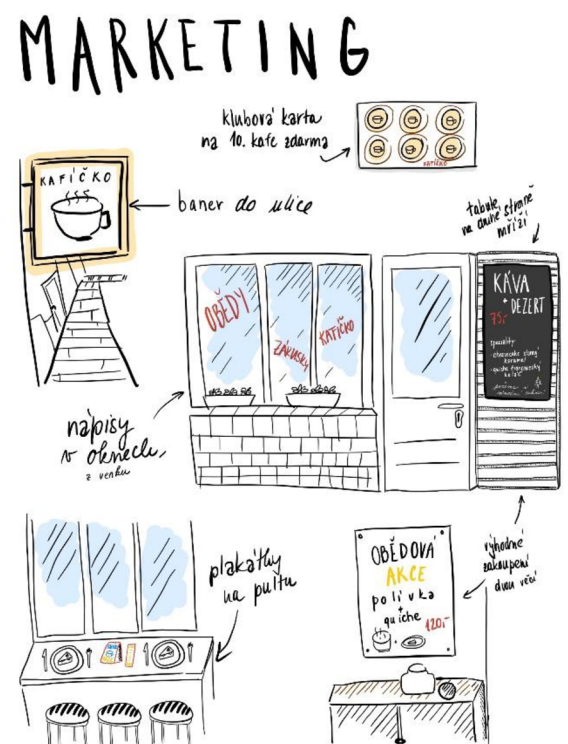 MARKETING
klubová karta
na 10. kafe zdarma
KAFÍČKO
KAFÍČKO
baner do ulice
tabule
na druhé straně
mříží
OBĚDY
ZÁKUSKY
KAFÍČKO
KÁVA
+
DEZERT
75,-
speciality:
- cheesecake slaný
karamel
nápisy
v oknech,
z venku
plakátky
na pultu
OBĚDOVÁ
AKCE
polívka
+
quiche
120,-
výhodné
zakoupení
dvou věcí